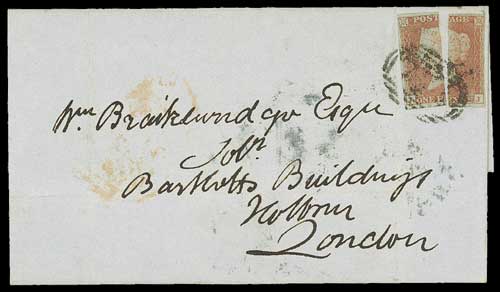 POSTAGE
ONE P
J
Wm Braikenridge Esqr
Solr
Bartletts Buildings
Holborn
London